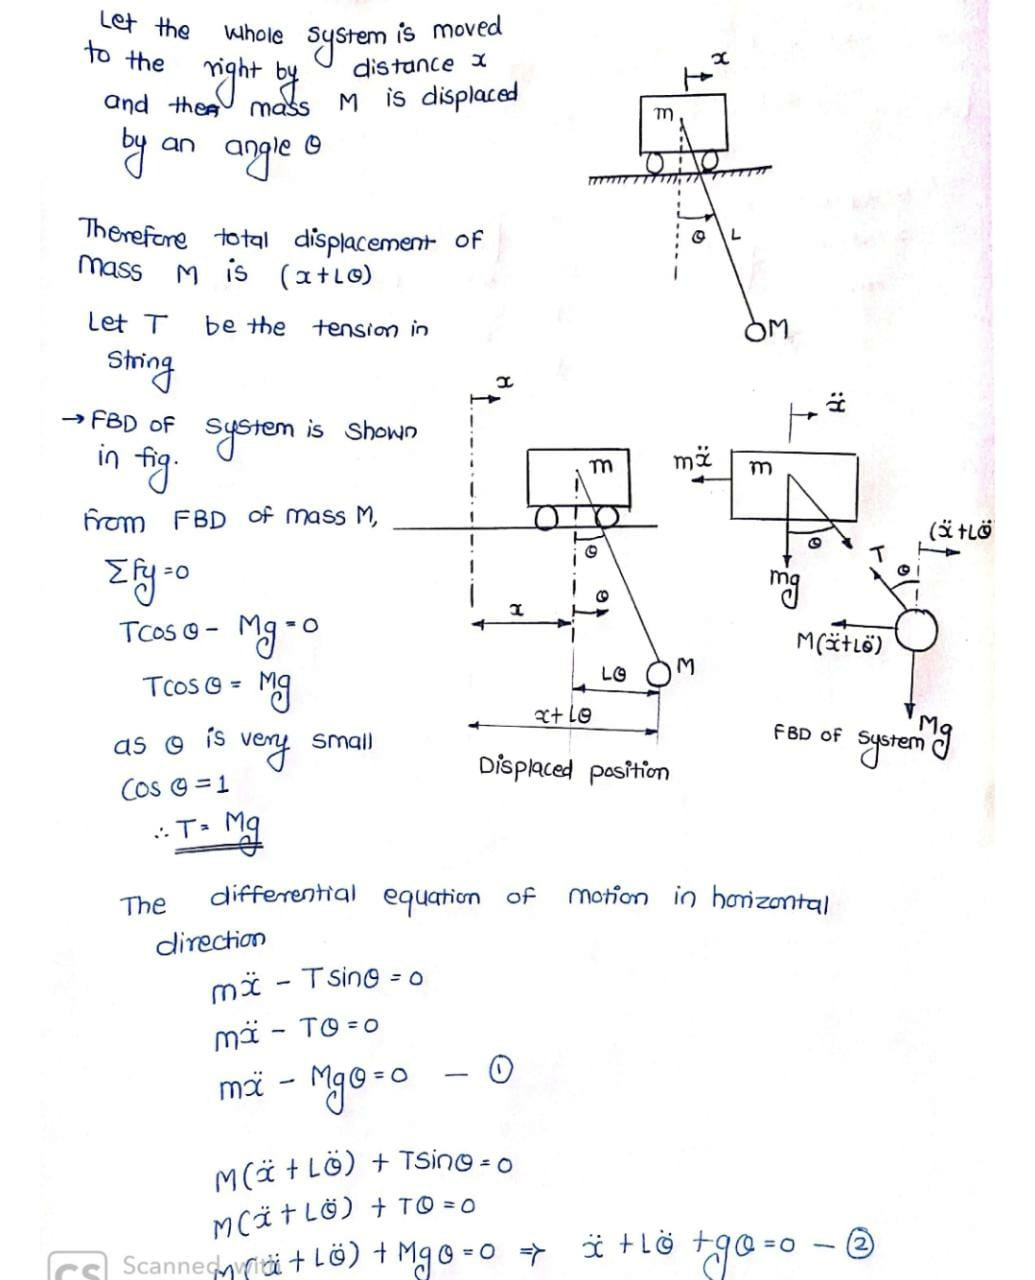 Let the whole system is moved
to the right by distance x
and then mass M is displaced
by an angle θ
x
m
θ L
M
Therefore total displacement of
mass M is (x+Lθ)
Let T be the tension in
string
→ FBD of system is shown
in fig.
x
m
θ
x
θ
Lθ
M
x+Lθ
Displaced position
ẍ
mẍ
m
θ
mg
T
θ
(ẍ+Lθ̈
M(ẍ+Lθ̈)
Mg
FBD of system
from FBD of mass M,
Σfy=0
Tcosθ - Mg=0
Tcosθ = Mg
as θ is very small
Cosθ=1
∴ T= Mg
The differential equation of motion in horizontal
direction
mẍ - Tsinθ=0
mẍ - Tθ=0
mẍ - Mgθ=0 — ①
M(ẍ+Lθ̈) + Tsinθ=0
M(ẍ+Lθ̈) + Tθ=0
M(ẍ+Lθ̈) + Mgθ=0 ⇒ ẍ+Lθ̈+gθ=0 — ②
CS Scanned with